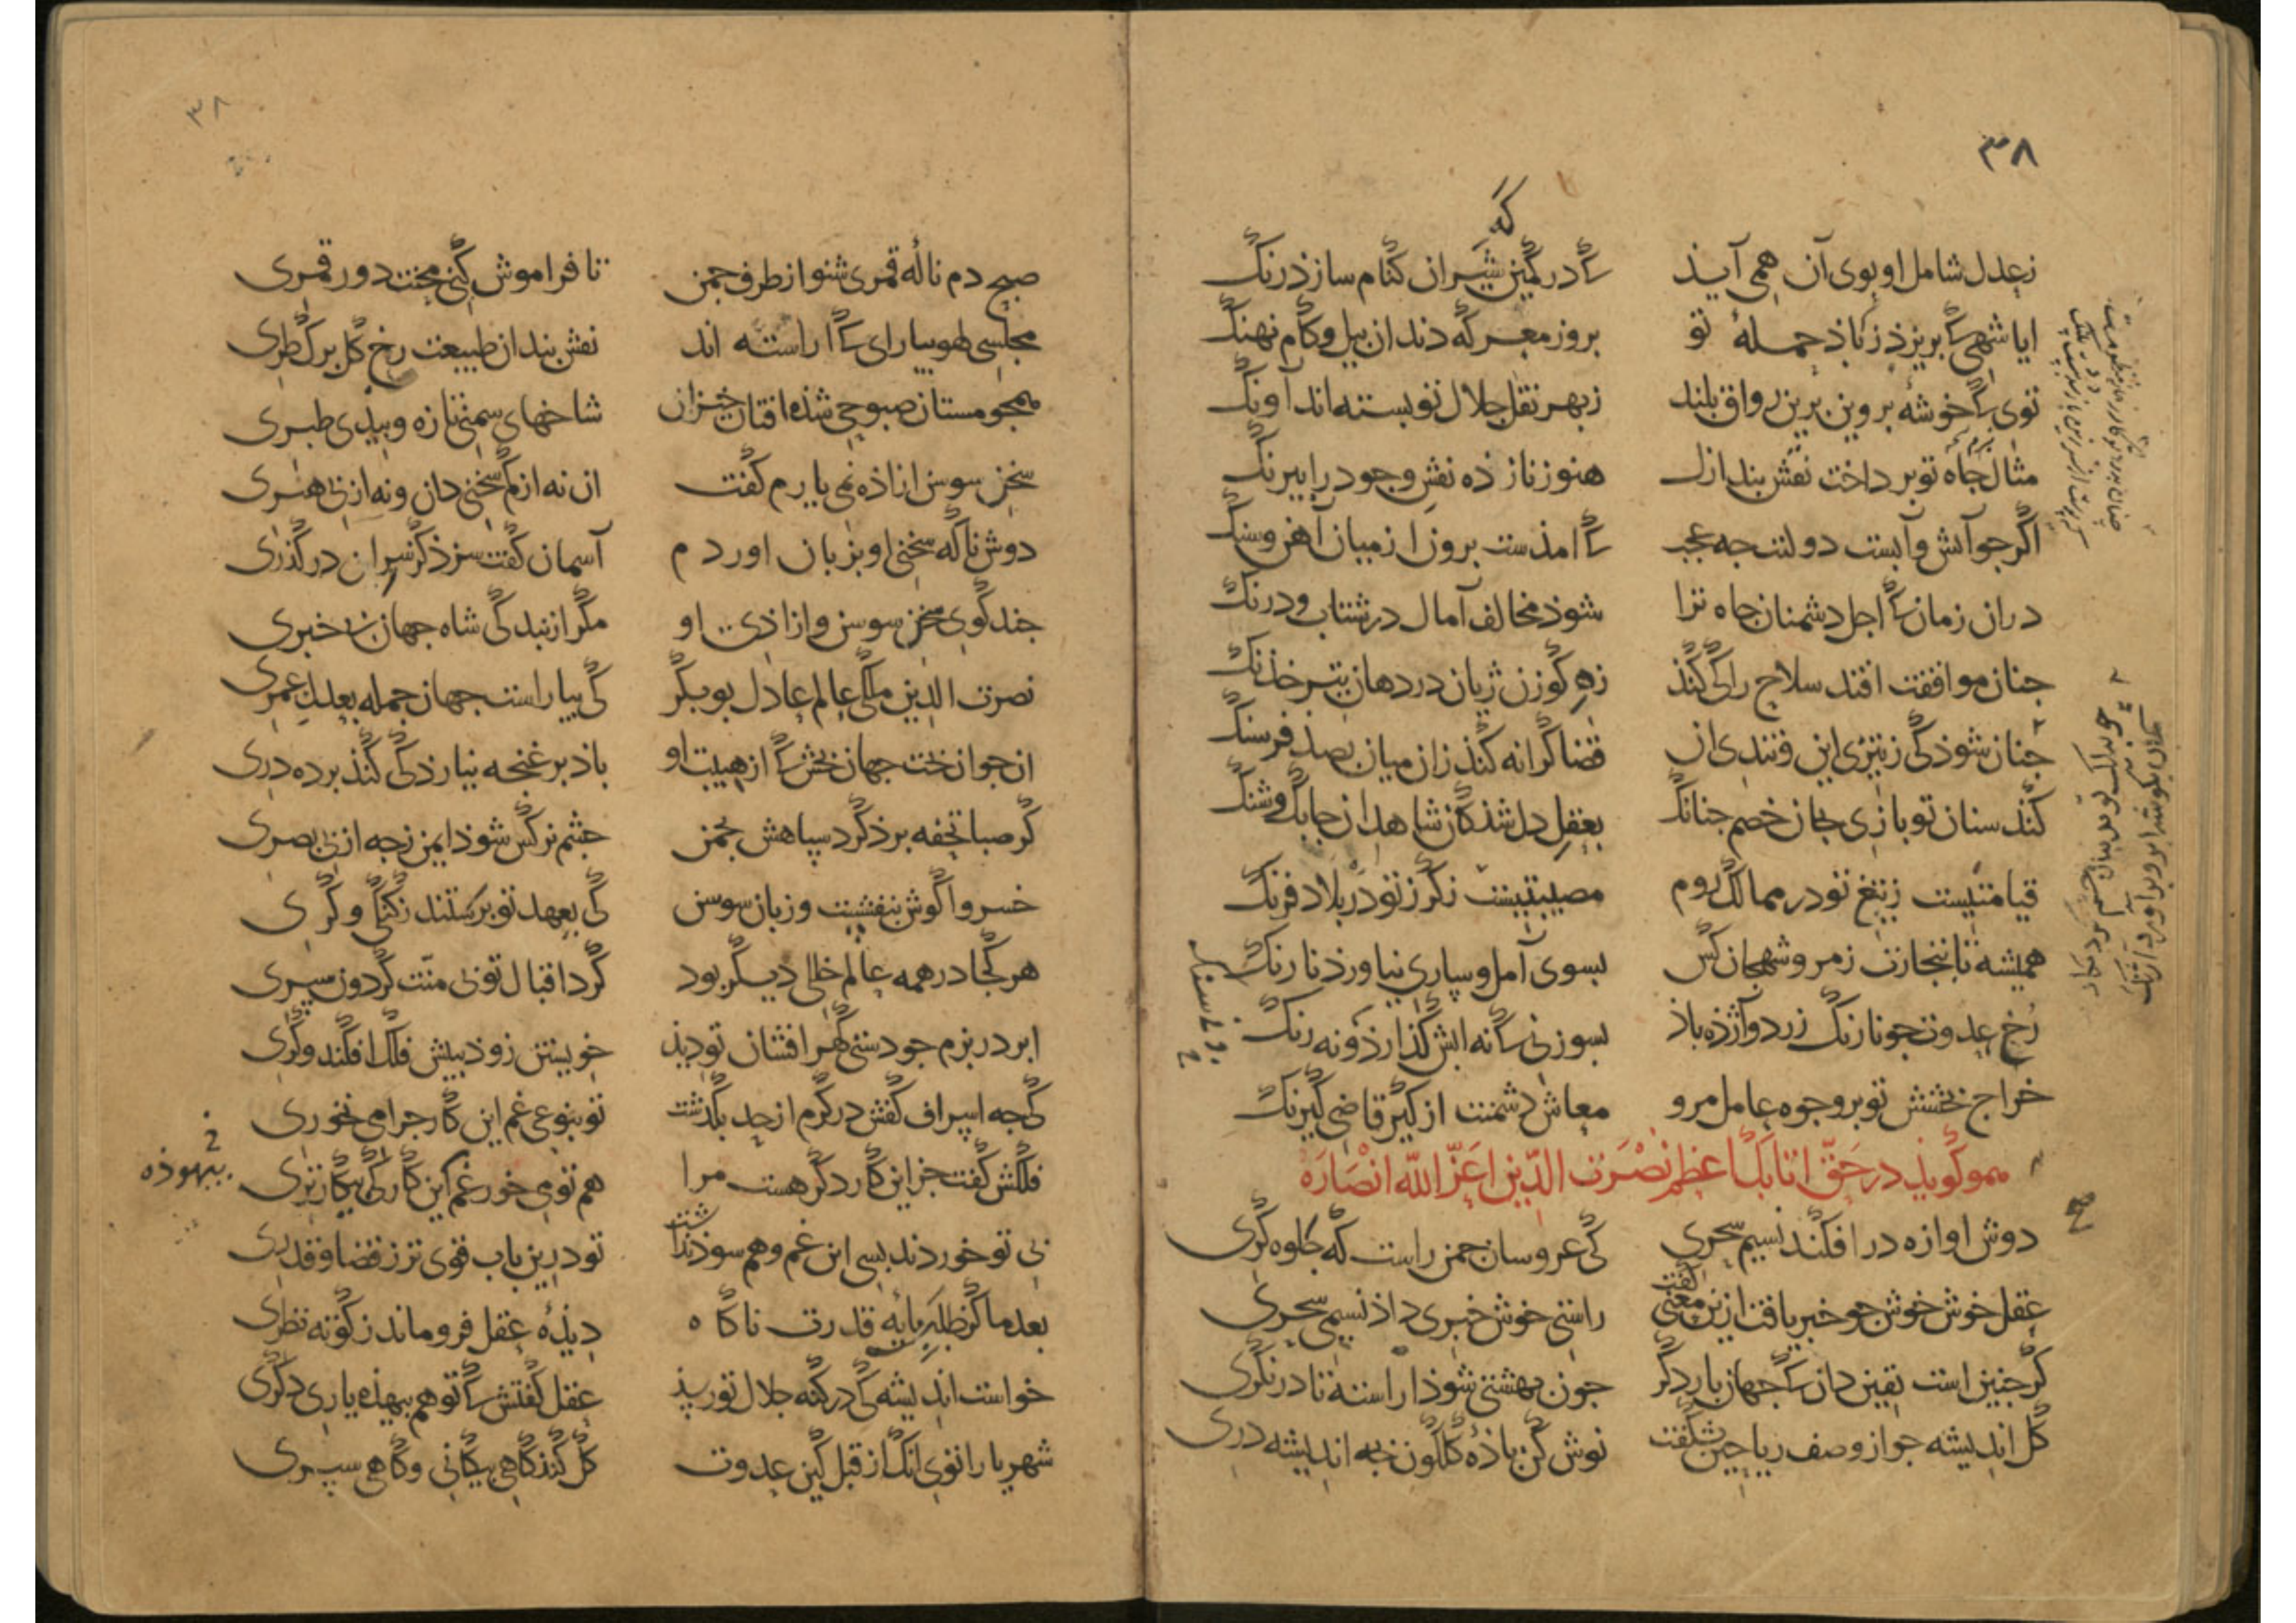 ۳۸
زعدل شامل او بوی آن همی آیذ
کا در کمین شیران کنام سازذ رنک
که
ایا شهی کا بریزذ زباذ حملهٔ تو
بروز معرکه دندان پیل و کام نهنک
توی کا خوشه بروین برین رواق بلند
زبهر نقل جلال تو بسته اند آونک
مثال جاه تو برداخت نقش بند ازل
هنوز نازذه نقش وجود را بیرنک
اکر جو آتش و آبست دولتت جه عجب
کا امذست بروز از میان آهن و سنک
دران زمان کا اجل دشمنان جاه ترا
شوذ مخالف آمال در شتاب و درنک
جنان موافقت افتد سلاح را کی کنذ
زه کوزن ژیان در دهان تیر خذنک
جنان شوذ کی زتیزی این و تندی ان
قضا کرانه کنذ زان میان بصذ فرسنک
کند سنان تو بازی بجان خصم جنانک
بعقل دل شذکان شاهدان جابک و شنک
قیامتیست زتیغ تو در ممالک روم
مصیبتیست زکرز تو در بلاد فرنک
همیشه تا بتجارت زمرو شهجان کس
بسوی آمل و ساری نیاورذ نارنک
رخ عدوت جو نارنک زرد و آژذه باذ
بسوزنی کا نه ابش کذارذ و نه رنک
خراج بخشش تو بر وجوه عامل مرو
معاش دشمنت از کیر قاضی کیرنک
هموکویذ در حق اتابک اعظم نصرت الدین اعز الله انصاره
دوش اوازه در افکند نسیم سحری
کی عروسان جمن راست که جلوه کری
عقل خوش خوش جو خبر یافت ازین معنی کفت
راستی خوش خبری داذ نسیم سحری
کر جنین است یقین دان کا جهان بار دکر
جون بهشتی شوذ اراسته تا درنکری
کل اندیشه جو از وصف ریاحین شکفت
نوش کن باذهٔ کلکون جه اندیشه دری
۳۸
صبح دم نالهٔ قمری شنو از طرف جمن
تا فراموش کنی محنت دور قمری
مجلسی طوبیارای کا اراسته اند
نقش بندان طبیعت رخ کل برک طری
همجو مستان صبوحی شذه افتان خیزان
شاخهای سمن تازه و بیدی طبری
سخن سوسن ازاذه نمی یارم کفت
ان نه از کم سخنی دان و نه از بی هنری
دوش ناکه سخنی او بزبان اوردم
آسمان کفت سزذ کر سر ان درکذری
جند کوی سخن سوسن و ازاذی او
مکر از بندکی شاه جهان بی خبری
نصرت الدین ملک عالم عادل بوبکر
کی بیاراست جهان جمله بعدل عمری
ان جوان بخت جهان بخش کا از هیبت او
باذ بر غنجه نیارذ کی کنذ برده دری
کر صبا تحفه برذ کرد سپاهش بجمن
جشم نرکس شوذ ایمن زجه از بی بصری
خسروا کوش بنفشیت و زبان سوسن
کی بعهد تو برستند زکنکی و کری
هر کجا در همه عالم خللی دیکر بود
کرد اقبال تو بی منت کردون سپری
ابر در بزم جو دستی کهر افشان تو دیذ
خویشتن زوذ ببیش فلک افکند و کری
کی جه اسراف کفش در کرم از حد بکذشت
تو بنوعی غم این کار جرا می نخوری
فلکش کفت جز این کار دکر هست مرا
هم تو می خور غم این کار کی بیکارتری
بیهوذه
بی تو خوردند بسی این غم و هم سوذ نداشت
تو درین باب قوی تر زقضا و قدری
بعد ما کز طلبت مایه قدرت ناکاه
دیذهٔ عقل فروماند زکوته نظری
خواست اندیشه کی در کنه جلال تو رسذ
عقل کفتش کا تو هم بیهذه یاری دکری
شهریارا توی انک از قبل کین عدوت
کل کنذ کاهی بیکانی و کاهی سپری